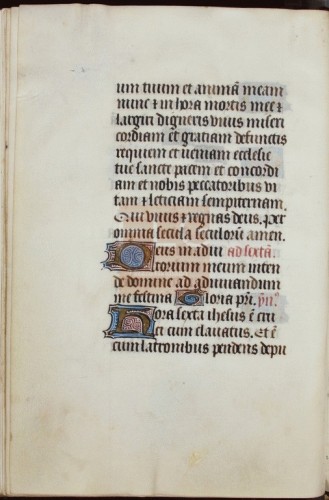 um tuum et animā meam
nunc ⁊ in hora mortis mee ⁊
largiri digneris viuis miseri
cordiam et gratiam defunctis
requiem et ueniam ecclesie
tue sancte pacem et concordi
am et nobis peccatoribus vi
tam ⁊ leticiam sempiternam.
Qui viuis ⁊ regnas deus. Per
omnia secula seculorū amen.
Deus in adiu ad sextā.
torium meum inten
de domine ad adiuuandum
me festina Gloria pr̄i. ẏn̄.
Hora sexta ihesus ē cru
ci cum clauatus. Et ē
cum latronibus pendens depu